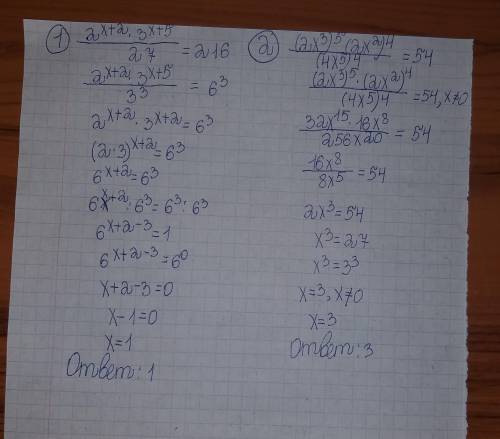 ① 2^(x+2) · 3^(x+5) / 27 = 216
2^(x+2) · 3^(x+5) / 3³ = 6³
2^(x+2) · 3^(x+2) = 6³
(2·3)^(x+2) = 6³
6^(x+2) = 6³
6^(x+2) : 6³ = 6³ : 6³
6^(x+2-3) = 1
6^(x+2-3) = 6⁰
x+2-3=0
x-1=0
x=1
Ответ: 1
② (2x³)⁵ (2x²)⁴ / (4x⁵)⁴ = 54
(2x³)⁵ · (2x²)⁴ / (4x⁵)⁴ = 54, x≠0
32x¹⁵ · 16x⁸ / 256x20 = 54
16x⁸ / 8x⁵ = 54
2x³=54
x³=27
x³=3³
x=3, x≠0
x=3
Ответ: 3